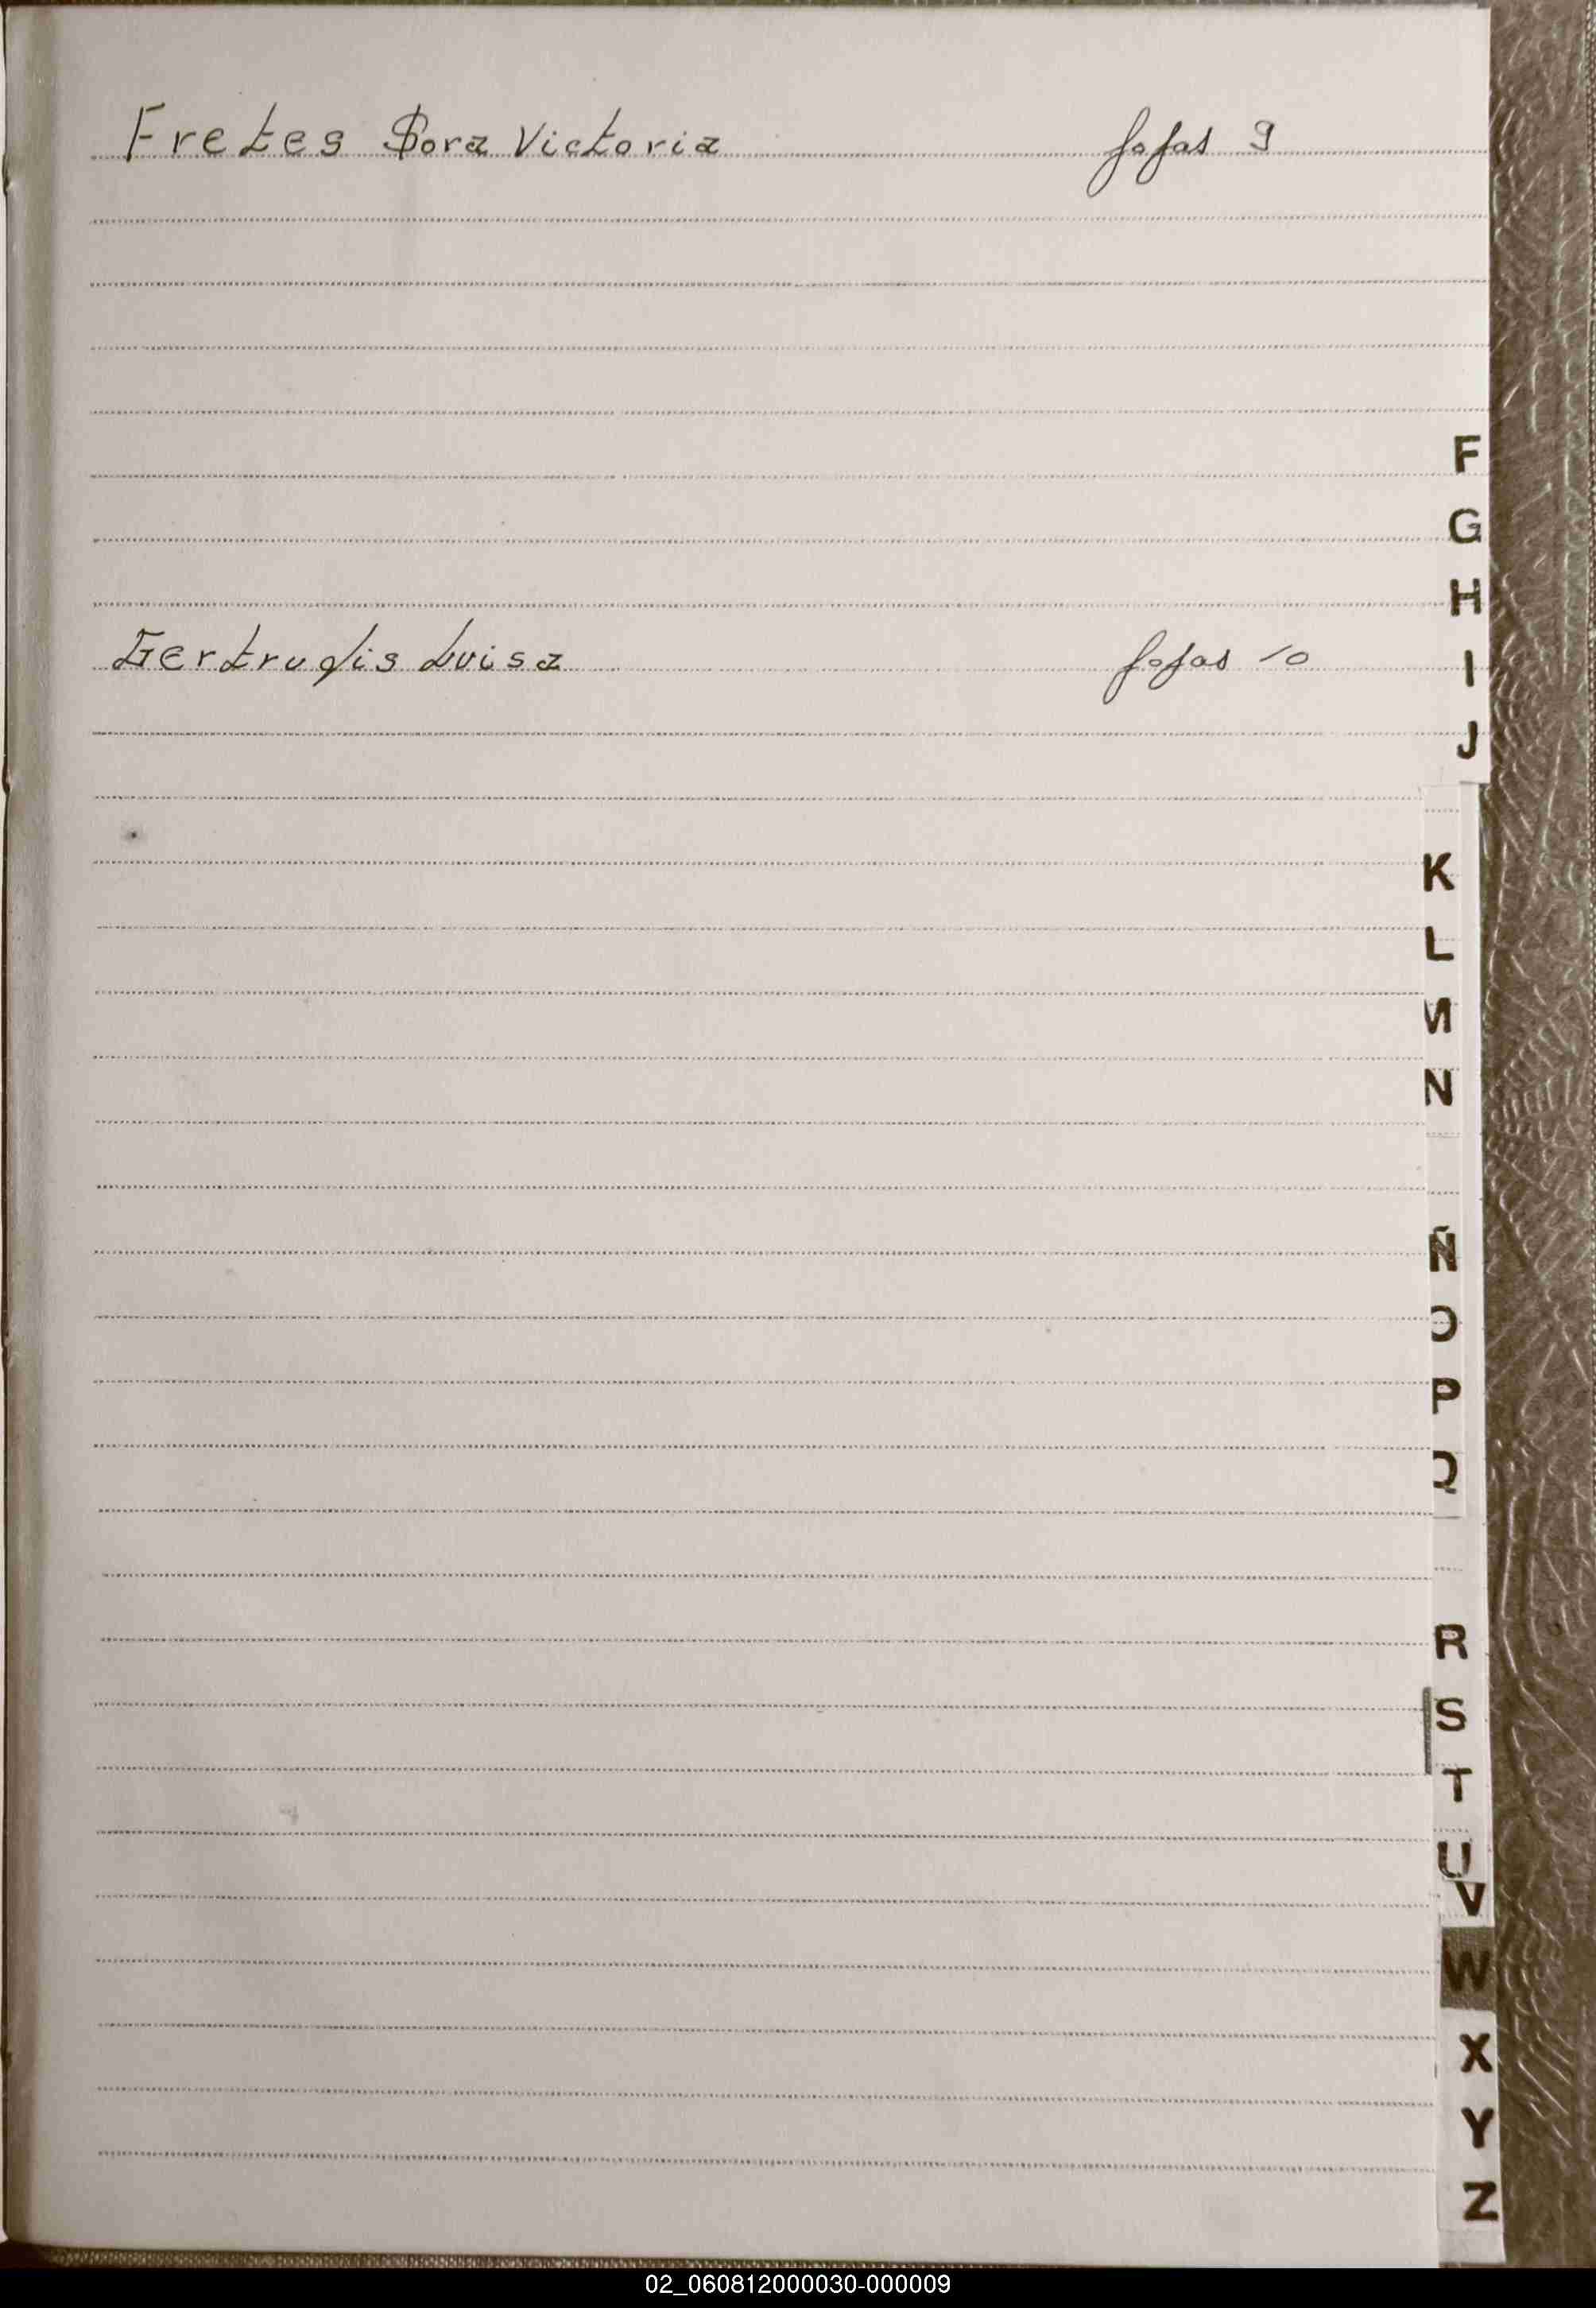 Fretes Dora Victoria fojas 9
F
G
H
Gertrudis Luisa fojas 10
I
J
K
L
M
N
Ñ
O
P
Q
R
S
T
U
V
W
X
Y
Z
02_060812000030-000009